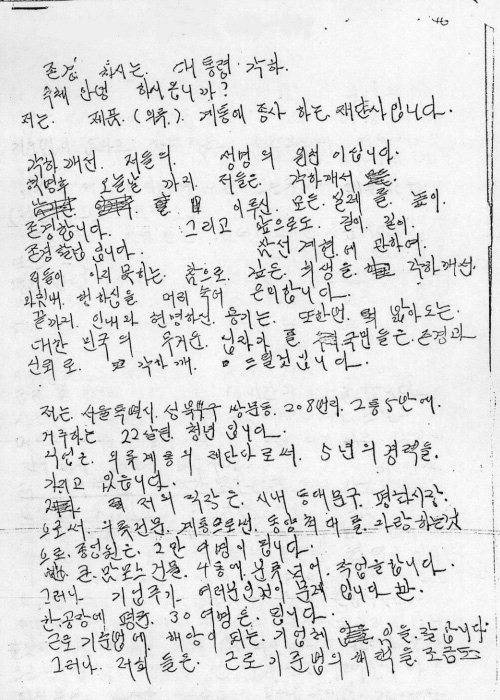 존경 하시는. 대통령 각하.
옥체 안녕 하시옵니까?
저는. 제품. (의류). 계통에 종사 하는. 재단사입니다.
각하께선. 저들의. 생명의 원선 이십니다.
혁명후 오늘날 까지. 저들은. 각하께서
이루신. 모든. 일을. 높이.
존경합니다. 그리고 앞으로도. 길이 길이.
존경할겁니다. 삼선 개헌.에 관하여.
저들이 아지 못하는. 참으로. 깊은. 희생을. 각하께선.
마침내. 행하심을. 머리 숙여 은미합니다.
끝까지. 인내와 현명하신. 용기는. 또한번. 밝아오는.
대한 민국의 무거운. 십자가 를. 국민들은.존경과
신뢰로. 각하께. 드릴것입니다.
저는. 서울특별시. 성북구 쌍문동. 208번지. 2통 5반에.
거주하는 22살된. 청년 입니다.
직업은. 의류계통의 재단사로써. 5년의 경력을.
가지고 있습니다.
저의 직장은. 시내 동대문구. 평화시장.
으로써. 의류전문. 계통으로썬. 동양 최대를. 자랑하는것
으로. 종업원은. 2만 여명이 됩니다.
큰. 맞모스 건물. 4동에 분류 되어. 작업을합니다.
그러나 기업주가. 여러분인것이 문제 입니다 만.
한 공장에 평균. 30 여명은. 됩니다.
근로 기준법에. 해당이 되는. 기업체 임을. 잘 압니다.
그러나. 저희 들은. 근로 기준법의 혜택을. 조금도